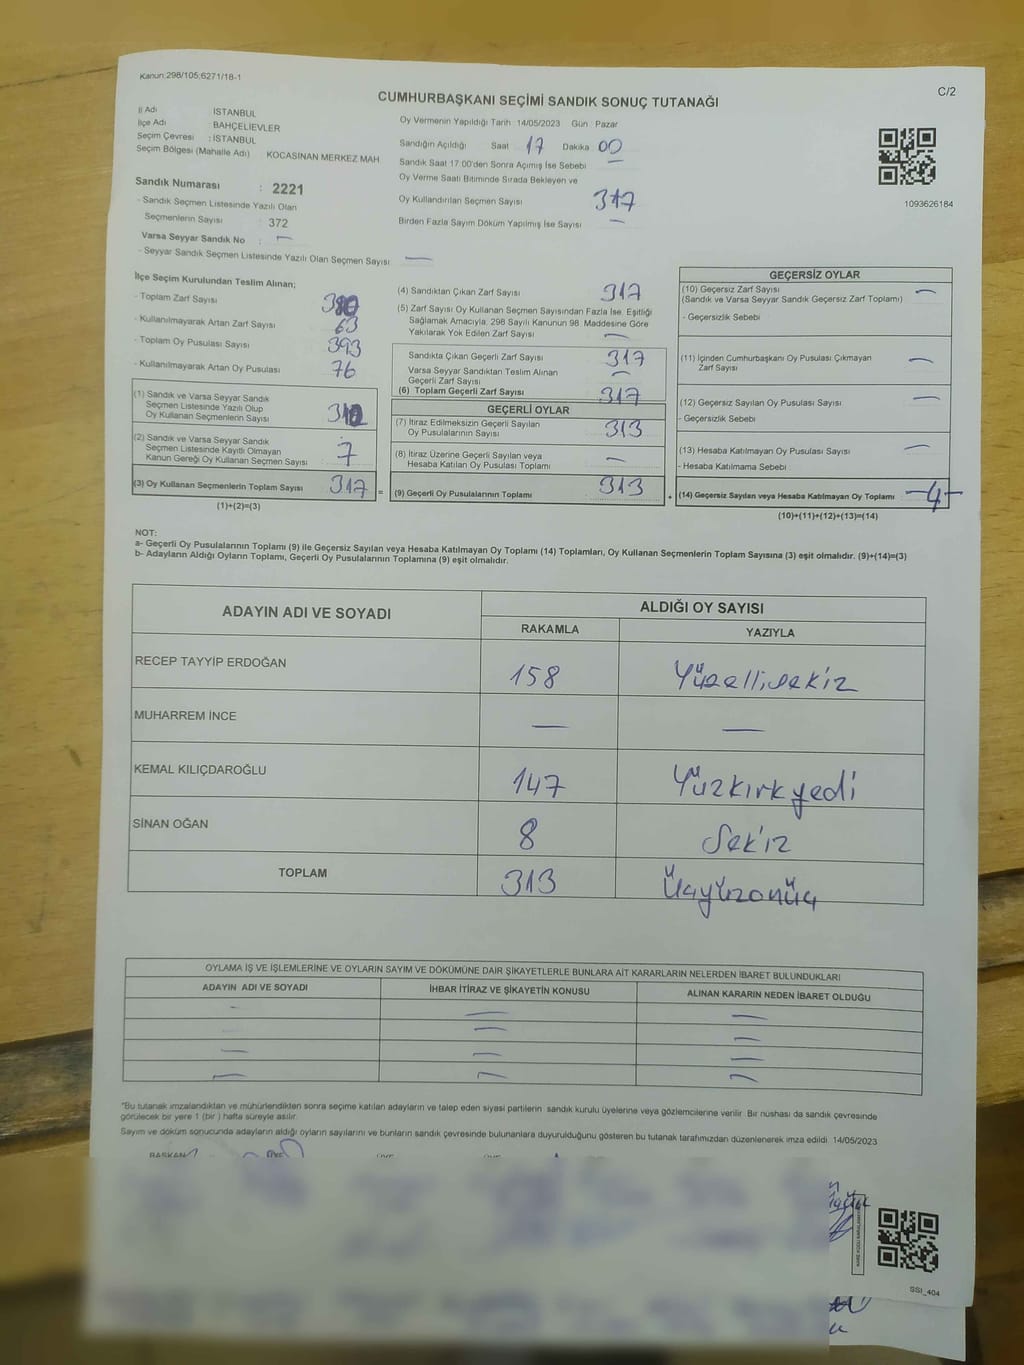 Kanun:298/105;6271/18-1
C/2
CUMHURBAŞKANI SEÇİMİ SANDIK SONUÇ TUTANAĞI
İl Adı : İSTANBUL
İlçe Adı : BAHÇELİEVLER
Seçim Çevresi : İSTANBUL
Seçim Bölgesi (Mahalle Adı) KOCASİNAN MERKEZ MAH
Sandık Numarası : 2221
- Sandık Seçmen Listesinde Yazılı Olan
Seçmenlerin Sayısı : 372
Varsa Seyyar Sandık No : —
- Seyyar Sandık Seçmen Listesinde Yazılı Olan Seçmen Sayısı : —
Oy Vermenin Yapıldığı Tarih :14/05/2023 Gün : Pazar
Sandığın Açıldığı Saat : 17 Dakika : 00
Sandık Saat 17:00'den Sonra Açımış İse Sebebi : —
Oy Verme Saati Bitiminde Sırada Bekleyen ve
Oy Kullandırılan Seçmen Sayısı 317
Birden Fazla Sayım Döküm Yapılmış İse Sayısı : —
1093626184
İlçe Seçim Kurulundan Teslim Alınan;
- Toplam Zarf Sayısı
- Kullanılmayarak Artan Zarf Sayısı 63
- Toplam Oy Pusulası Sayısı 393
- Kullanılmayarak Artan Oy Pusulası 76
(1) Sandık ve Varsa Seyyar Sandık
Seçmen Listesinde Yazılı Olup
Oy Kullanan Seçmenlerin Sayısı 310
(2) Sandık ve Varsa Seyyar Sandık
Seçmen Listesinde Kayıtlı Olmayan
Kanun Gereği Oy Kullanan Seçmen Sayısı 7
(3) Oy Kullanan Seçmenlerin Toplam Sayısı 317 =
(1)+(2)=(3)
(4) Sandıktan Çıkan Zarf Sayısı 317
(5) Zarf Sayısı Oy Kullanan Seçmen Sayısından Fazla İse, Eşitliği
Sağlamak Amacıyla, 298 Sayılı Kanunun 98. Maddesine Göre
Yakılarak Yok Edilen Zarf Sayısı —
Sandıkta Çıkan Geçerli Zarf Sayısı 317
Varsa Seyyar Sandıktan Teslim Alınan
Geçerli Zarf Sayısı —
(6) Toplam Geçerli Zarf Sayısı 317
GEÇERLİ OYLAR
(7) İtiraz Edilmeksizin Geçerli Sayılan
Oy Pusulalarının Sayısı 313
(8) İtiraz Üzerine Geçerli Sayılan veya
Hesaba Katılan Oy Pusulası Toplamı —
(9) Geçerli Oy Pusulalarının Toplamı 313 +
GEÇERSİZ OYLAR
(10) Geçersiz Zarf Sayısı —
(Sandık ve Varsa Seyyar Sandık Geçersiz Zarf Toplamı)
- Geçersizlik Sebebi
(11) İçinden Cumhurbaşkanı Oy Pusulası Çıkmayan
Zarf Sayısı —
(12) Geçersiz Sayılan Oy Pusulası Sayısı —
- Geçersizlik Sebebi
(13) Hesaba Katılmayan Oy Pusulası Sayısı —
- Hesaba Katılmama Sebebi
(14) Geçersiz Sayılan veya Hesaba Katılmayan Oy Toplamı —4—
(10)+(11)+(12)+(13)=(14)
NOT:
a- Geçerli Oy Pusulalarının Toplamı (9) ile Geçersiz Sayılan veya Hesaba Katılmayan Oy Toplamı (14) Toplamları, Oy Kullanan Seçmenlerin Toplam Sayısına (3) eşit olmalıdır. (9)+(14)=(3)
b- Adayların Aldığı Oyların Toplamı, Geçerli Oy Pusulalarının Toplamına (9) eşit olmalıdır.
ADAYIN ADI VE SOYADI ALDIĞI OY SAYISI
RAKAMLA YAZIYLA
RECEP TAYYİP ERDOĞAN 158 Yüzellisekiz
MUHARREM İNCE — —
KEMAL KILIÇDAROĞLU 147 Yüzkırkyedi
SİNAN OĞAN 8 Sekiz
TOPLAM 313 Üçyüzonüç
OYLAMA İŞ VE İŞLEMLERİNE VE OYLARIN SAYIM VE DÖKÜMÜNE DAİR ŞİKAYETLERLE BUNLARA AİT KARARLARIN NELERDEN İBARET BULUNDUKLARI
ADAYIN ADI VE SOYADI İHBAR İTİRAZ VE ŞİKAYETİN KONUSU ALINAN KARARIN NEDEN İBARET OLDUĞU
— — —
— —
— — —
— — —
*Bu tutanak imzalandıktan ve mühürlendikten sonra seçime katılan adayların ve talep eden siyasi partilerin sandık kurulu üyelerine veya gözlemcilerine verilir. Bir nüshası da sandık çevresinde
görülecek bir yere 1 (bir ) hafta süreyle asılır.
Sayım ve döküm sonucunda adayların aldığı oyların sayılarını ve bunların sandık çevresinde bulunanlara duyurulduğunu gösteren bu tutanak tarafımızdan düzenlenerek imza edildi. 14/05/2023
BAŞKAN ÜYE ÜYE ÜYE
SSI_404